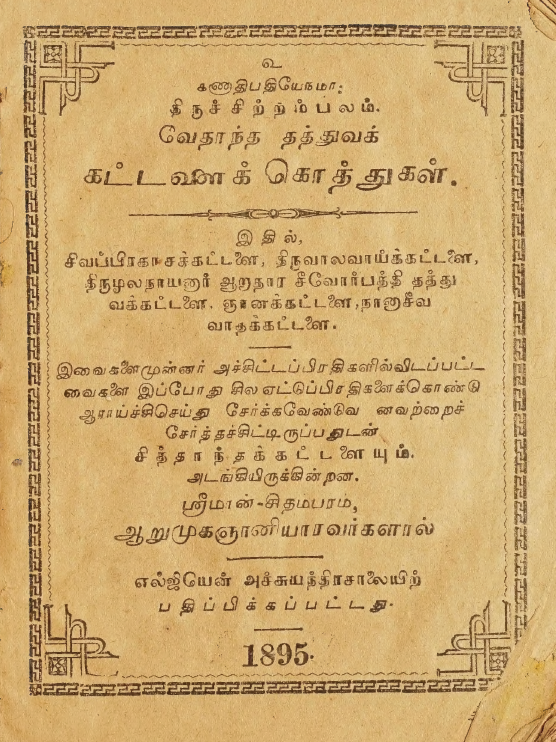 உ
கணாதிபதியேநமா:
திருச்சிற்றம்பலம்.
வேதாந்த தத்துவக்
கட்டளைக் கொத்துகள்.
இதில்,
சிவப்பிரகாசக்கட்டளை, திருவாலவாய்க்கட்டளை,
திருமூலநாயனார் ஆறாதார சீவோர்பத்தி தத்து
வக்கட்டளை. ஞானக்கட்டளை,நானாசீவ
வாதக்கட்டளை.
இவைகளைமுன்னர் அச்சிட்டப்பிரதிகளில்விடப்பட்ட
வைகளை இப்போது சிலஏட்டுப்பிரதிகளைக்கொண்டு
ஆராய்ச்சிசெய்து சேர்க்கவேண்டுவ னவற்றைச்
சேர்த்தச்சிட்டிருப்பதுடன்
சித்தாந்தக்கட்டளையும்.
அடங்கியிருக்கின்றன.
ஸ்ரீமான்-சிதம்பரம்,
ஆறுமுகஞானியாரவர்களால்
எல்ஜியென் அச்சுயந்திரசாலையிற்
பதிப்பிக்கப்பட்டது.
1895.